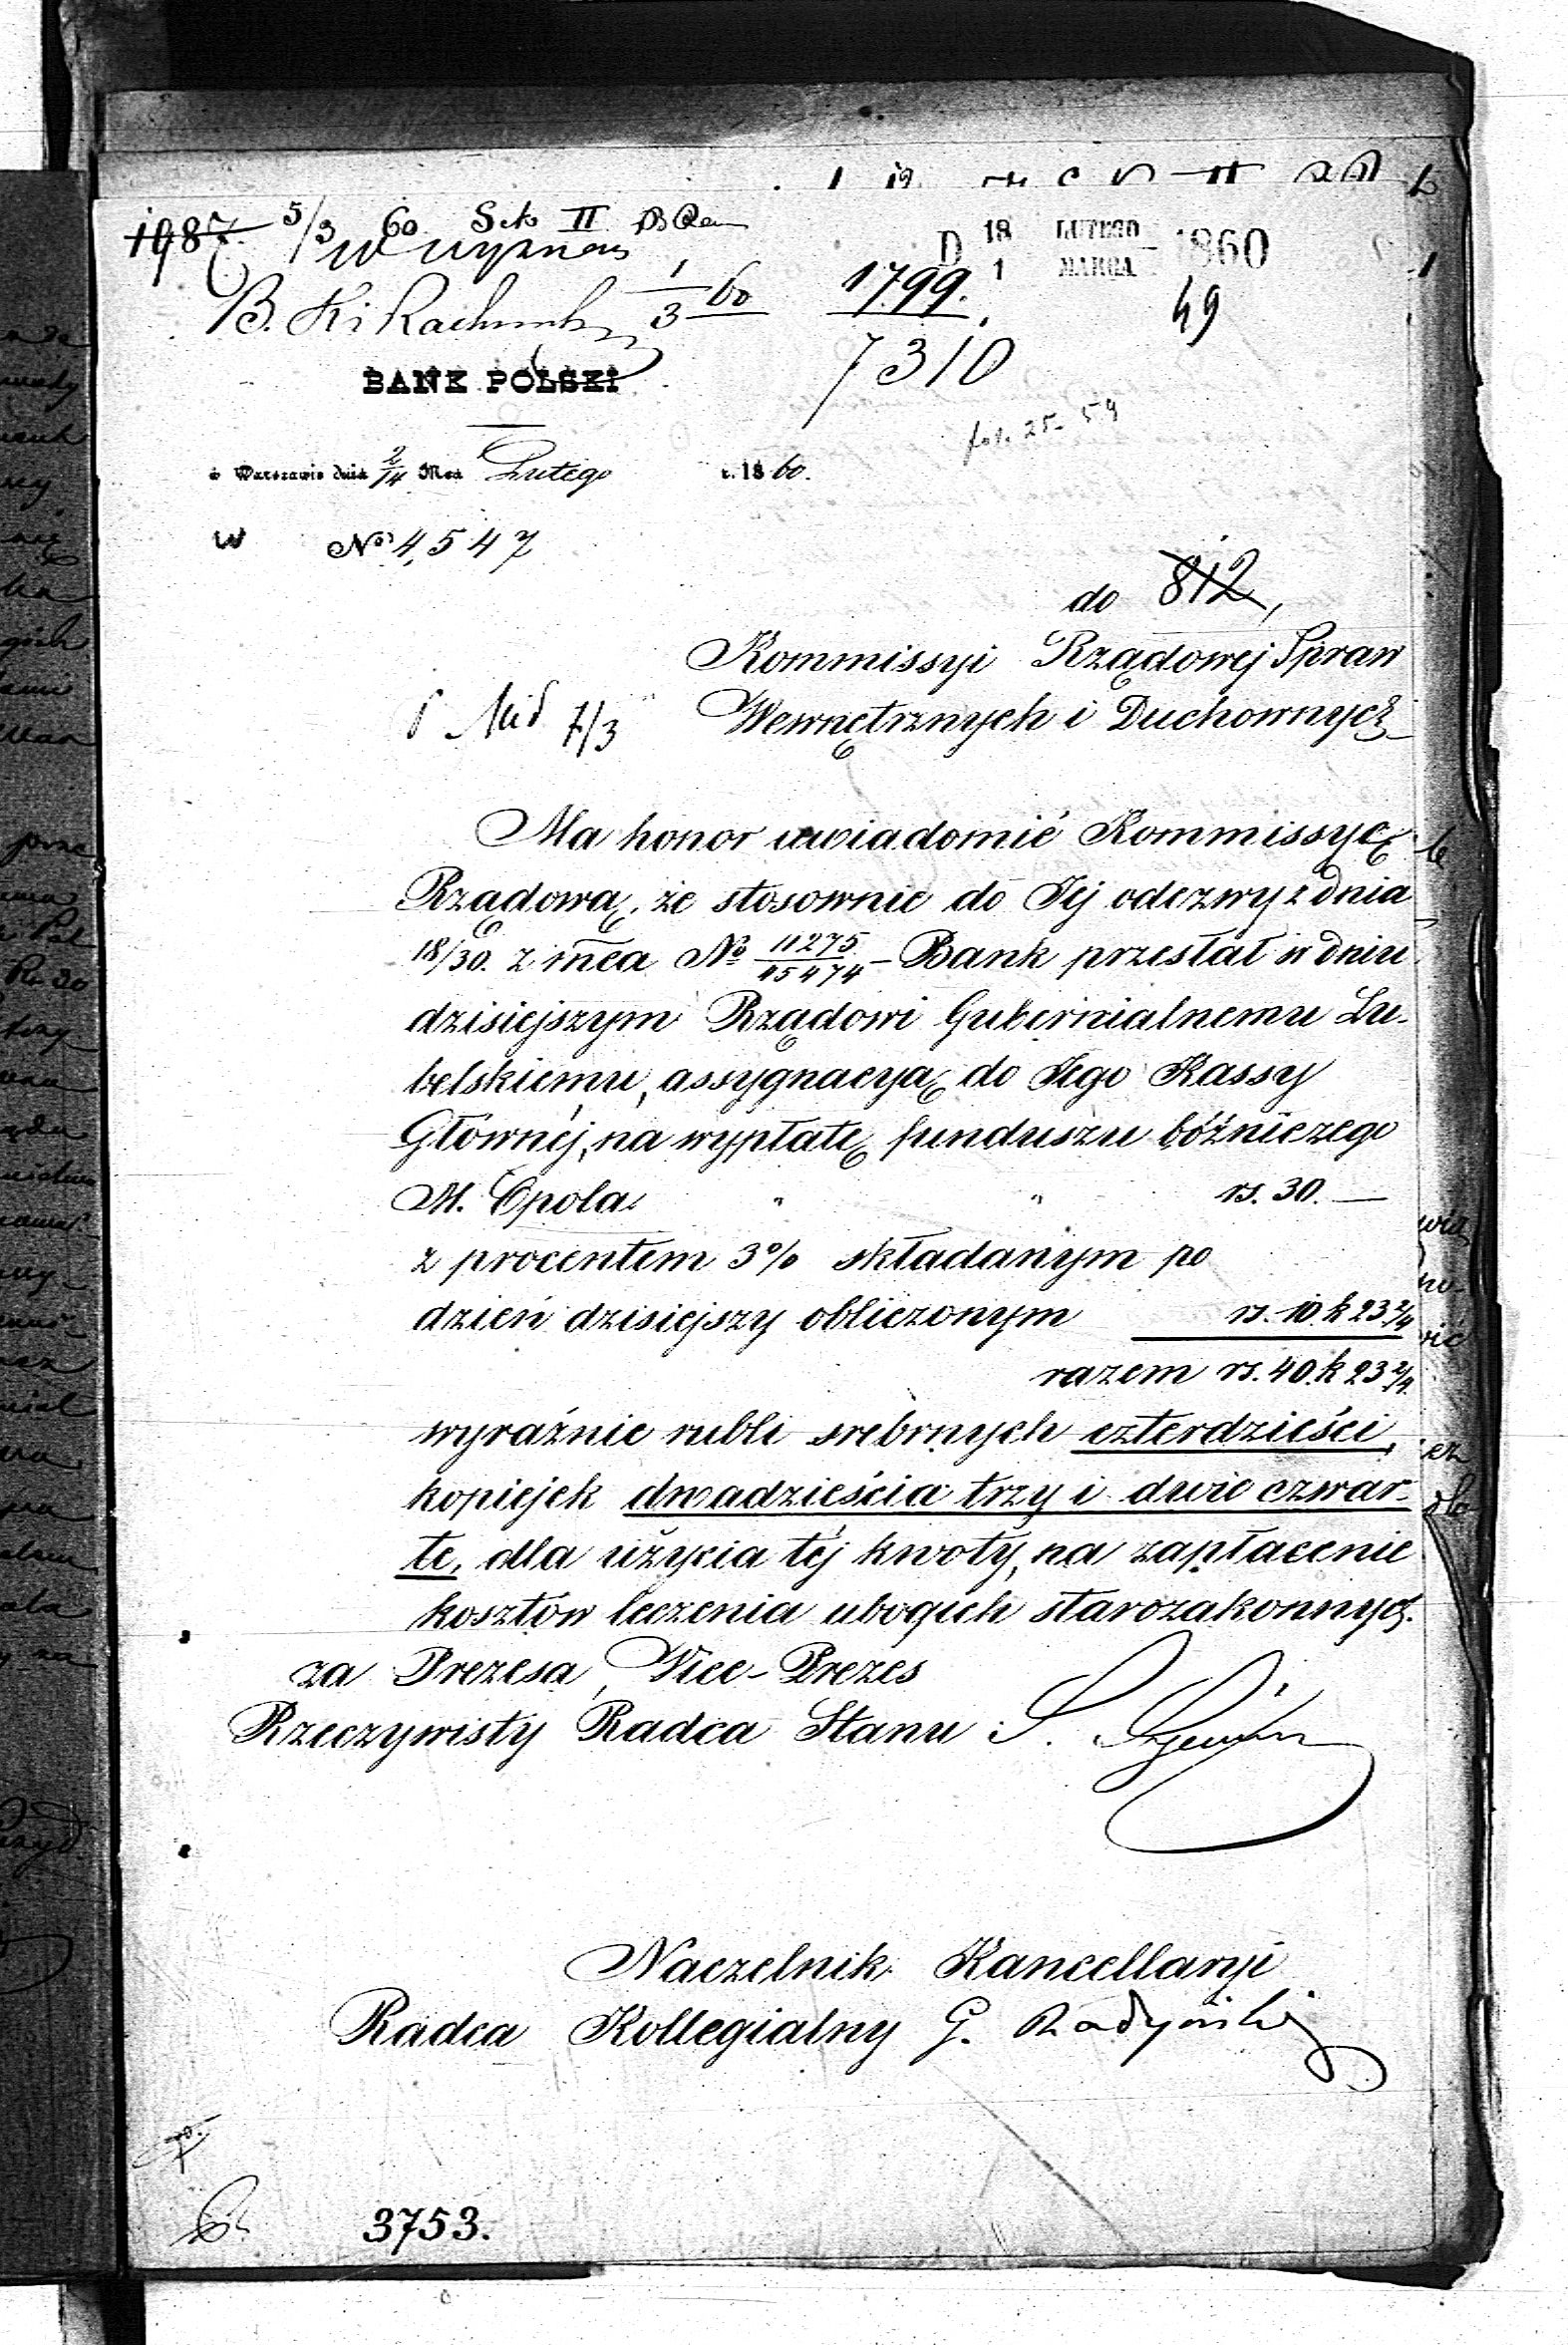 1987. 5/3 60 II
D 18 LUTEGO 1 MARCA 1860
1/3 60 1799. 49
B. Ki
7310
BANK POLSKI
fol. 25-59
w Warszawie dnia 2/14 Mca Lutego r. 1860.
W № 4,547
do 812
Kommissyi Rządowej Spraw
7/3 Wewnętrznych i Duchownych
Ma honor uwiadomić Kommissyę
Rządową, że stosownie do Jej odezwy z dnia
18/30. z. mca № 11275/45474 - Bank przesłał w dniu
dzisiejszym Rządowi Gubernialnemu Lu-
belskiemu, assygnacyą do Jego Kassy
Głównéj, na wypłatę funduszu bóżniczego
M. Opola " " rs. 30. —
z procentem 3% składanym po
dzień dzisiejszy obliczonym rs. 10. k 23 2/4
razem rs. 40. k 23 2/4.
wyraźnie rubli srebrnych czterdzieści,
kopiejek dwadzieścia trzy i dwie czwar-
te, dla użycia téj kwoty, na zapłacenie
kosztów leczenia ubogich starozakonnych.
za Prezesa, Vice-Prezes
Rzeczywisty Radca Stanu S.
Naczelnik Kancellaryi
Radca Kollegialny G.
3753.